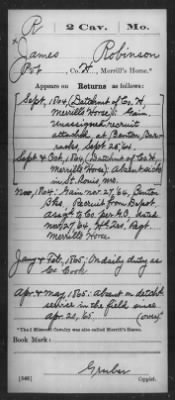 R 2 Cav. Mo.
James Robinson
Pvt, Co. H, Merrill's Horse.*
Appears on Returns as follows:
Sept, 1864 (Detachmt of Co. H,
Merrills Horse): Gain,
Unassigned recruit
attached at Benton Bar-
racks, Sept 25, 64.
Sept & Oct, 1864 (Detachmt of Co. H,
Merrills Horse): Absent sick
in St. Louis, Mo.
Nov, 1864: Gain Nov. 27, 64, Benton
Bks, Recruit from Depot
assgd to Co. per
Nov 27, 64, Regt.
Merrills Horse
Jany & Feb, 1865: On daily duty as
Co. Cook
Apr & May, 1865: Absent on detchd
service in the field since
Apr. 20, 65. (over)
*The 2 Missouri Cavalry was also called Merrill's Horse.
Book Mark:
Gruber
(546) Copyist.